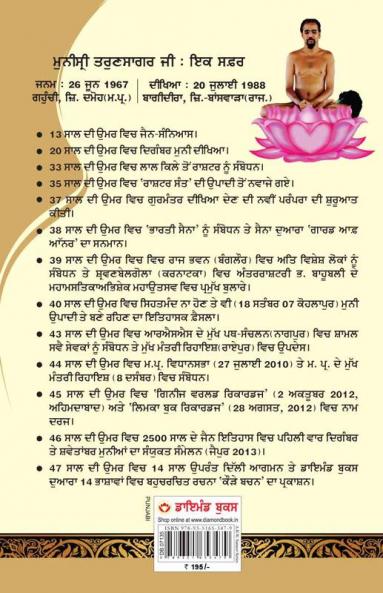 ਮੁਨੀਸ਼੍ਰੀ ਤਰੁਣਸਾਗਰ ਜੀ : ਇਕ ਸਫ਼ਰ
ਜਨਮ : 26 ਜੂਨ 1967
ਗਹੁੰਚੀ, ਜ਼ਿ. ਦਮੋਹ(ਮ.ਪ੍ਰ.)
ਦੀਖਿਆ : 20 ਜੁਲਾਈ 1988
ਬਾਗਦੀਰਾ, ਜ਼ਿ.-ਬਾਂਸਵਾੜਾ(ਰਾਜ.)
• 13 ਸਾਲ ਦੀ ਉਮਰ ਵਿਚ ਜੈਨ-ਸੰਨਿਆਸ।
• 20 ਸਾਲ ਦੀ ਉਮਰ ਵਿਚ ਦਿਗੰਬਰ ਮੁਨੀ ਦੀਖਿਆ।
• 33 ਸਾਲ ਦੀ ਉਮਰ ਵਿਚ ਲਾਲ ਕਿਲੇ ਤੋਂ ਰਾਸ਼ਟਰ ਨੂੰ ਸੰਬੋਧਨ।
• 35 ਸਾਲ ਦੀ ਉਮਰ ਵਿਚ 'ਰਾਸ਼ਟਰ ਸੰਤ' ਦੀ ਉਪਾਦੀ ਤੋਂ ਨਵਾਜੇ ਗਏ।
• 37 ਸਾਲ ਦੀ ਉਮਰ ਵਿਚ ਗੁਰਮੰਤਰ ਦੀਖਿਆ ਦੇਣ ਦੀ ਨਵੀਂ ਪਰੰਪਰਾ ਦੀ ਸ਼ੁਰੂਆਤ
ਕੀਤੀ।
• 38 ਸਾਲ ਦੀ ਉਮਰ ਵਿਚ 'ਭਾਰਤੀ ਸੈਨਾ' ਨੂੰ ਸੰਬੋਧਨ ਤੇ ਸੈਨਾ ਦੁਆਰਾ 'ਗਾਰਡ ਆਫ਼
ਆੱਨਰ' ਦਾ ਸਨਮਾਨ।
• 39 ਸਾਲ ਦੀ ਉਮਰ ਵਿਚ ਵਿਚ ਰਾਜ ਭਵਨ (ਬੰਗਲੌਰ) ਵਿਚ ਅਤਿ ਵਿਸ਼ੇਸ਼ ਲੋਕਾਂ ਨੂੰ
ਸੰਬੋਧਨ ਤੇ ਸ਼੍ਰਵਣਬੇਲਗੋਲਾ (ਕਰਨਾਟਕਾ) ਵਿਚ ਅੰਤਰਰਾਸ਼ਟਰੀ ਭ. ਬਾਹੂਬਲੀ ਦੇ
ਮਹਾਮਸਤਿਕਾਅਭਿਸ਼ੇਕ ਮਹਾਉਤਸਵ ਵਿਚ ਪ੍ਰਮੁੱਖ ਬੁਲਾਰੇ।
• 40 ਸਾਲ ਦੀ ਉਮਰ ਵਿਚ ਸਿਹਤਮੰਦ ਨਾ ਹੋਣ ਤੇ ਵੀ (18 ਸਤੰਬਰ 07 ਕੋਹਲਾਪੁਰ) ਮੁਨੀ
ਉਪਾਦੀ ਤੇ ਬਣੇ ਰਹਿਣ ਦਾ ਇਤਿਹਾਸਕ ਫ਼ੈਸਲਾ।
• 43 ਸਾਲ ਦੀ ਉਮਰ ਵਿਚ ਆਰਐਸਐਸ ਦੇ ਮੁੱਖ ਪਥ-ਸੰਚਲਨ(ਨਾਗਪੁਰ) ਵਿਚ ਸ਼ਾਮਲ
ਸਵੈ ਸੇਵਕਾਂ ਨੂੰ ਸੰਬੋਧਨ ਤੇ ਮੁੱਖ ਮੰਤਰੀ ਰਿਹਾਇਸ਼(ਰਾਏਪੁਰ) ਵਿਚ ਉਪਦੇਸ।
• 44 ਸਾਲ ਦੀ ਉਮਰ ਵਿਚ ਮ.ਪ੍ਰ. ਵਿਧਾਨਸਭਾ (27 ਜੁਲਾਈ 2010) ਤੇ ਮ. ਪ੍ਰ. ਦੇ ਮੁੱਖ
ਮੰਤਰੀ ਰਿਹਾਇਸ਼ (8 ਦਸੰਬਰ) ਵਿਚ ਸੰਬੋਧਨ।
• 45 ਸਾਲ ਦੀ ਉਮਰ ਵਿਚ 'ਗਿਨੀਜ ਵਰਲਡ ਰਿਕਾਰਡਜ' (2 ਅਕਤੂਬਰ 2012,
ਅਹਿਮਦਾਬਾਦ) ਅਤੇ 'ਲਿਮਕਾ ਬੁਕ ਰਿਕਾਰਡਜ' (28 ਅਗਸਤ, 2012) ਵਿਚ ਨਾਮ
ਦਰਜ।
• 46 ਸਾਲ ਦੀ ਉਮਰ ਵਿਚ 2500 ਸਾਲ ਦੇ ਜੈਨ ਇਤਿਹਾਸ ਵਿਚ ਪਹਿਲੀ ਵਾਰ ਦਿਗੰਬਰ
ਤੇ ਸ਼ਵੇਤਾਂਬਰ ਮੁਨੀਆਂ ਦਾ ਸੰਯੁਕਤ ਸੰਮੇਲਨ (ਜੈਪੁਰ 2013)।
• 47 ਸਾਲ ਦੀ ਉਮਰ ਵਿਚ 14 ਸਾਲ ਉਪਰੰਤ ਦਿੱਲੀ ਆਗਮਨ ਤੇ ਡਾਇਮੰਡ ਬੁਕਸ
ਦੁਆਰਾ 14 ਭਾਸ਼ਾਵਾਂ ਵਿਚ ਬਹੁਚਰਚਿਤ ਰਚਨਾ 'ਕੌੜੇ ਬਚਨ' ਦਾ ਪ੍ਰਕਾਸ਼ਨ।
PUNJABI
ਡਾਇਮੰਡ ਬੁਕਸ
Shop online at www.diamondbook.in
₹ 195/-